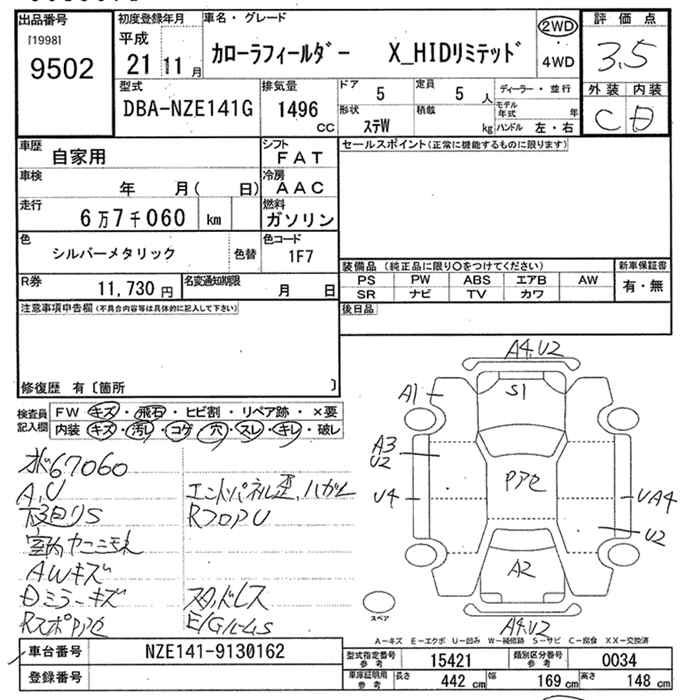 出品番号
[1998]
9502
初度登録年月
平成
21 11 月
車名・グレード
カローラフィールダー X_HIDリミテッド
2WD
4WD
評価点
3.5
外装 内装
C D
型式
DBA-NZE141G
排気量
1496 cc
ドア 5
定員 5 人
ディーラー・並行
形状 ステW
積載 kg
モデル年式 年
ハンドル 左・右
車歴 自家用
シフト FAT
セールスポイント(正常に機能するものに限ります)
車検 年 月( 日)
冷房 AAC
走行 6万7千060 km
燃料 ガソリン
色 シルバーメタリック 色替
色コード 1F7
装備品(純正品に限り○をつけてください)
新車保証書
PS PW ABS エアB AW
SR ナビ TV カワ
有・無
R券 11,730 円
名変通知期限 月 日
後日品
注意事項申告欄(不具合内容等は具体的に記入して下さい)
修復歴 有〔箇所 〕
検査員記入欄
FW キズ・飛石・ヒビ割・リペア跡・×要
内装 キズ・汚レ・コゲ・穴・スレ・キレ・破レ
水67060
A,U
エンドパネル歪,ハガレ
下回りS
RフロアU
AWキズ
Dミラーキズ
スタッドレス
A4.U2
A1
S1
A3
U2
Pアセ
U4
UA4
U2
A2
A4.U2
スペア
A-キズ E-エクボ U-凹み W-補修跡 S-サビ C-腐食 XX-交換済
車台番号 NZE141-9130162
登録番号
型式指定番号 参考 15421
類別区分番号 参考 0034
車庫証明用 参考 長さ 442 cm 幅 169 cm 高さ 148 cm